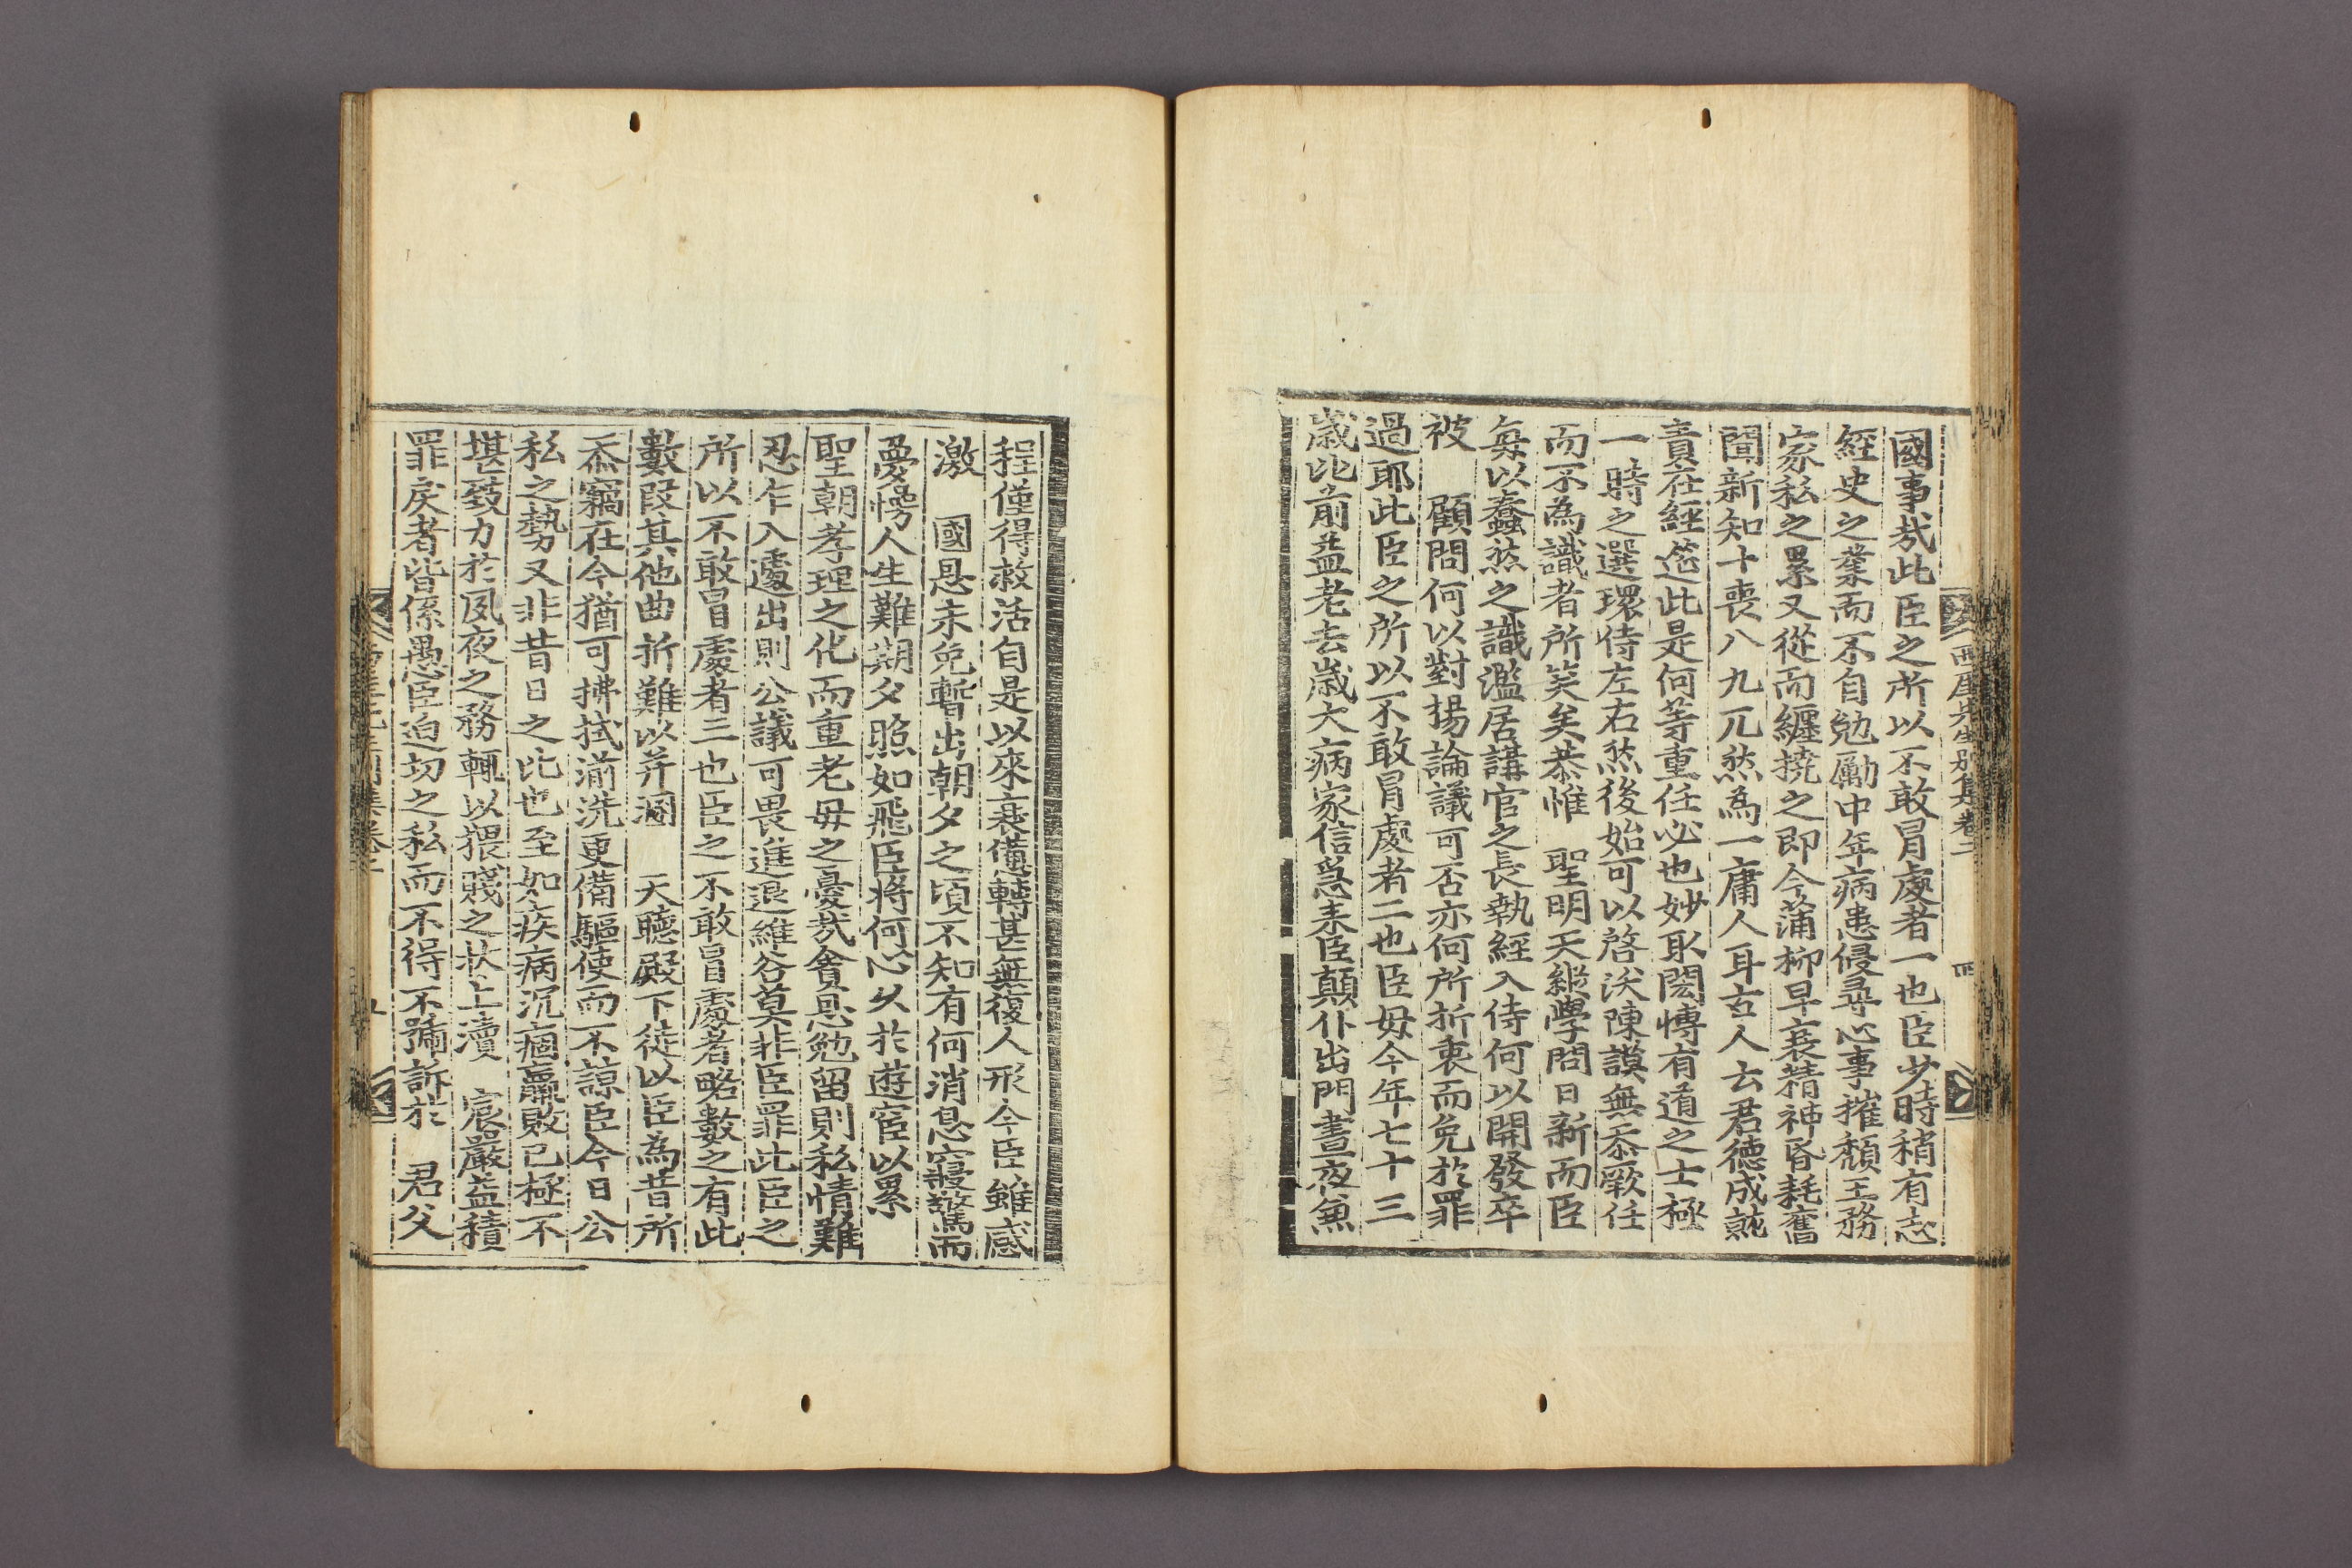 西厓先生別集卷二 四
國事㢤此臣之所以不敢冒處者一也臣少時稍有志
經史之業而不自勉勵中年病患侵尋心事摧頹王務
家私之累又從而纏撓之即今蒲柳早衰精神昏耗舊
聞新知十喪八九兀然為一庸人耳古人云君德成就
責在經筵此是何等重任必也妙取閎愽有道之士極
一時之選環侍左右然後始可以啓沃陳謨無忝厥任
而不為識者所笑矣恭惟 聖明天縱學問日新而臣
每以蠢然之識濫居講官之長執經入侍何以開發卒
被 顧問何以對揚論議可否亦何所折衷而免於罪
過耶此臣之所以不敢冒處者二也臣母今年七十三
歲比前益老去歲大病家信急來臣顚仆出門晝夜兼
程僅得救活自是以來衰憊轉甚無復人形今臣雖感
激 國恩未免暫出朝夕之頃不知有何消息寢驚而
憂慯人生難期夕照如飛臣將何心久於遊宦以累
聖朝孝理之化而重老母之憂㢤貪恩勉留則私情難
忍乍入遽出則公議可畏進退維谷莫非臣罪此臣之
所以不敢冒處者三也臣之不敢冒處者略數之有此
數段其他曲折難以幷溷 天聽殿下徒以臣為昔所
忝竊在今猶可拂拭湔洗更備驅使而不諒臣今日公
私之勢又非昔日之比也至如疾病沉痼羸敗已極不
堪致力於夙夜之務輒以猥賤之狀上瀆 宸嚴益積
罪戾者皆係愚臣迫切之私而不得不號訴於 君父